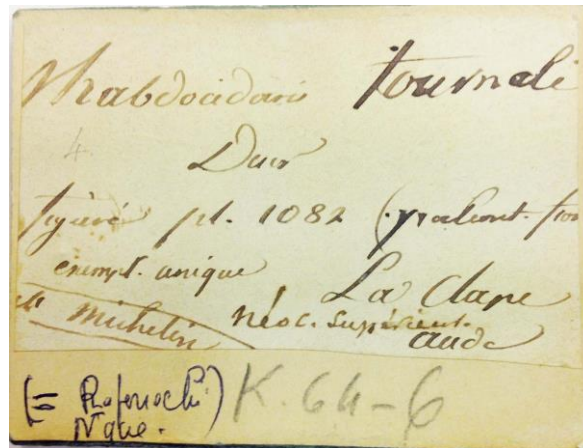 Rhabdocidaris tournali
4
Desor
figuré pl. 1082 (paléont. fran
exempl. unique La Clape
coll. Michelin néoc. Supérieur.
aude
(= K. 64-6